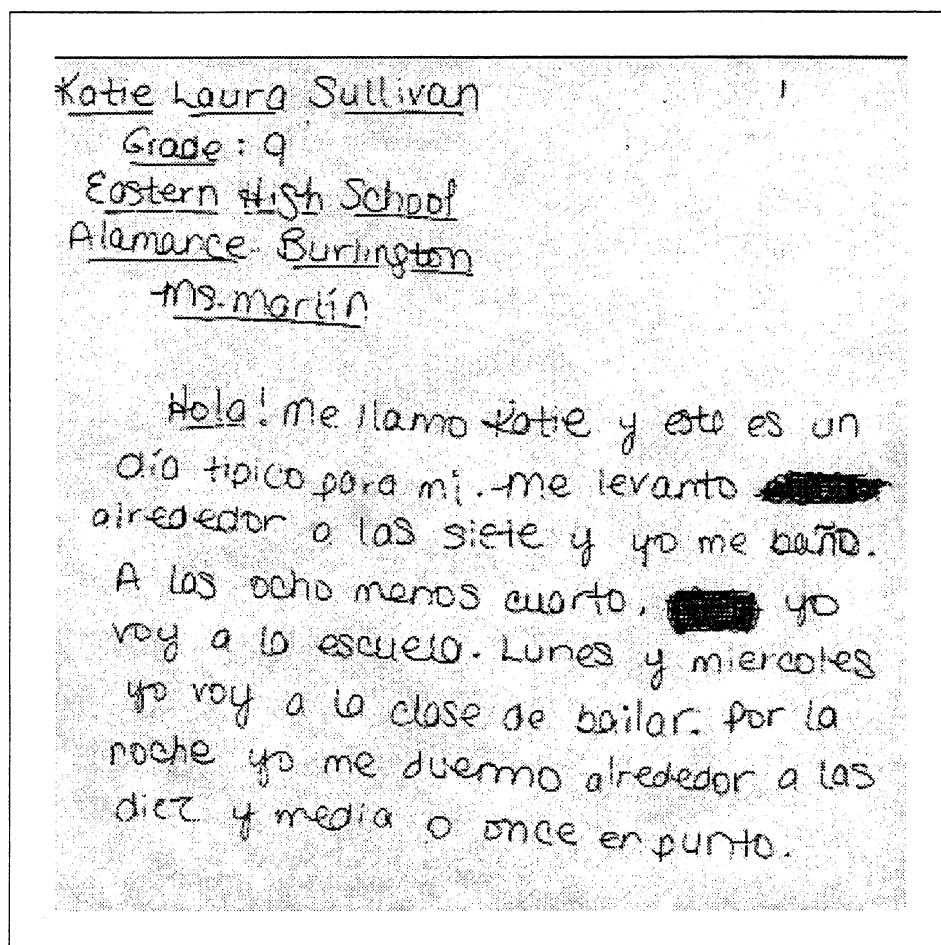 Katie Laura Sullivan 1
Grade: 9
Eastern High School
Alamance-Burlington
Ms. Martín
Hola! Me llamo Katie y este es un
día tipico para mi. Me levanto
alrededor a las siete y yo me baño.
A las ocho menos cuarto, yo
voy a la escuela. Lunes y miercoles
yo voy a la clase de bailar. Por la
noche yo me duermo alrededor a las
diez y media o once en punto.